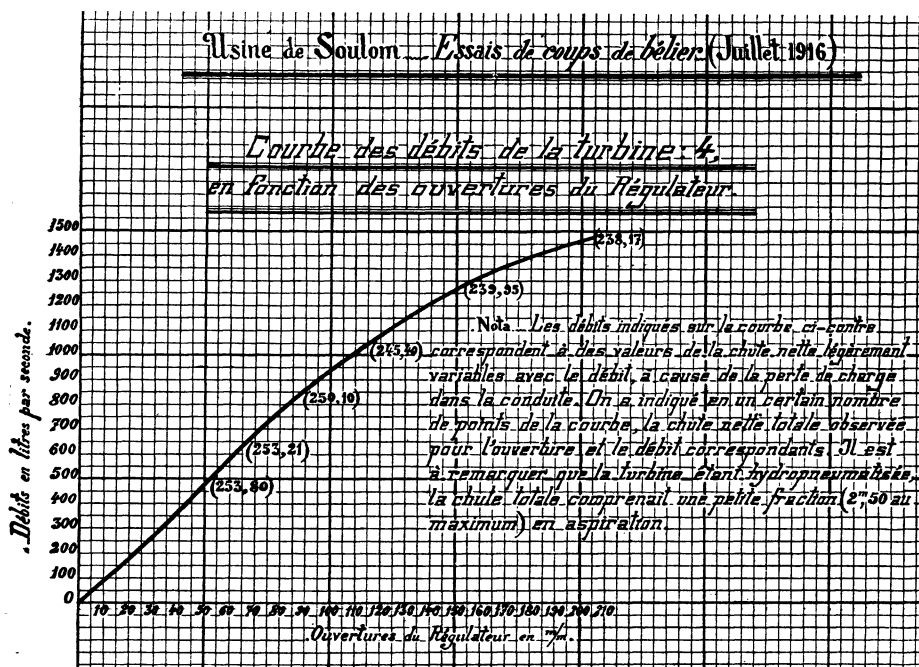 Usine de Soulom _ Essais de coups de bélier (Juillet 1916)
Courbe des débits de la turbine: 4,
en fonction des ouvertures du Régulateur.
1500
1400
1300
1200
1100
1000
900
800
700
600
500
400
300
200
100
0
Débits en litres par seconde.
(238,17)
(239,95)
(245,40)
(250,10)
(253,21)
(253,80)
Nota _ Les débits indiqués sur la courbe ci-contre
correspondent à des valeurs de la chute nette légèrement
variables avec le débit, à cause de la perte de charge
dans la conduite. On a indiqué en un certain nombre
de points de la courbe, la chute nette totale observée
pour l'ouverture et le débit correspondants. Il est
à remarquer que la turbine étant hydropneumatisée,
la chute totale comprenait une petite fraction (2ᵐ,50 au
maximum) en aspiration.
10 20 30 40 50 60 70 80 90 100 110 120 130 140 150 160 170 180 190 200 210
Ouvertures du Régulateur en m/m.